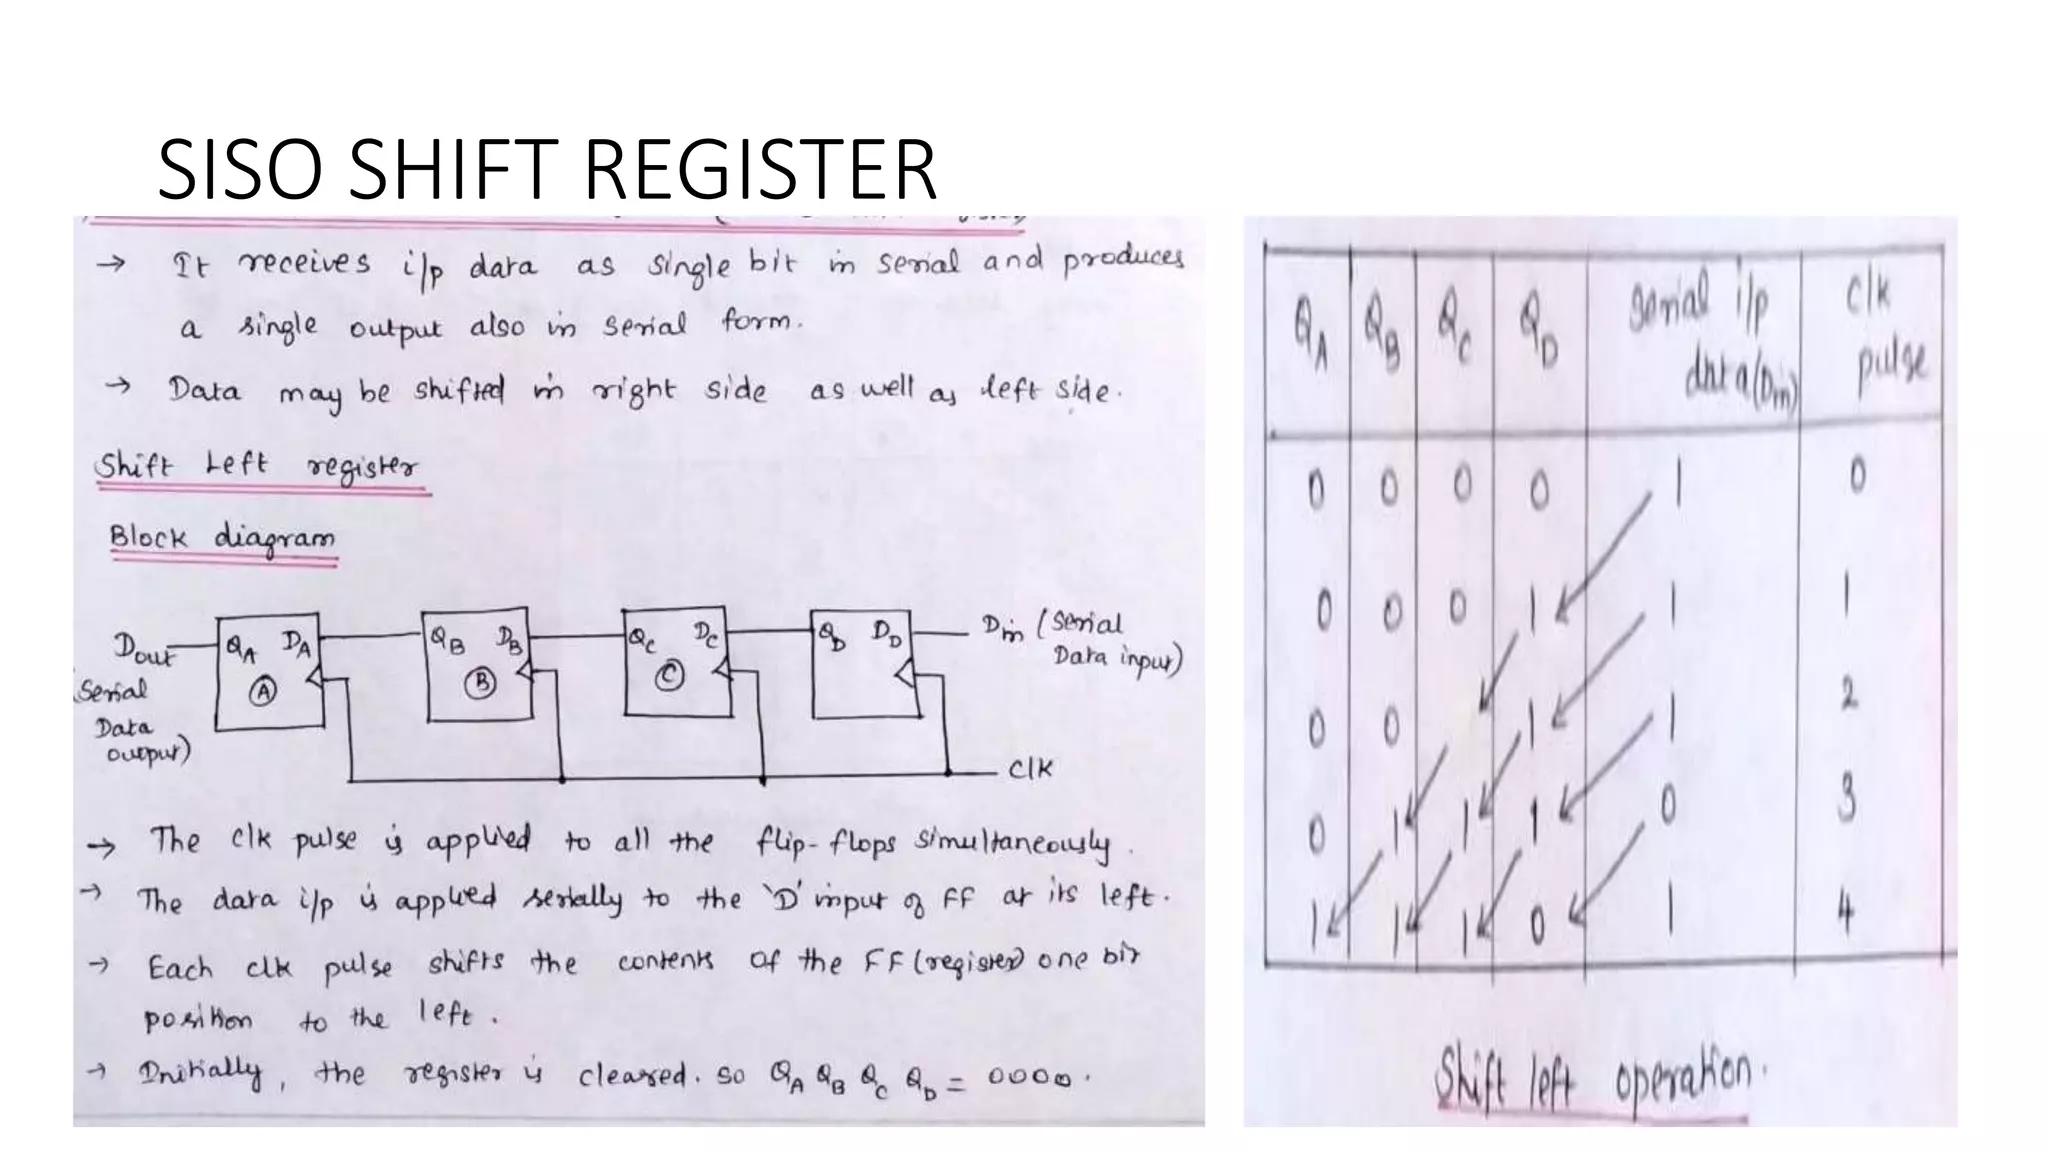 SISO SHIFT REGISTER
→ It receives i/p data as single bit in serial and produces
a single output also in serial form.
→ Data may be shifted in right side as well as left side.
Shift Left register
Block diagram
Dout (Serial Data output) QA DA A QB DB B QC DC C QD DD Din (Serial Data input)
Clk
→ The clk pulse is applied to all the flip-flops simultaneously.
→ The data i/p is applied serially to the 'D' input of FF at its left.
→ Each clk pulse shifts the contents of the FF (register) one bit
position to the left.
→ Initially, the register is cleared. so QA QB QC QD = 0000.
QA QB QC QD Serial i/p data(Din) Clk pulse
0 0 0 0 1 0
0 0 0 1 1 1
0 0 1 1 2
0 1 1 1 0 3
1 1 1 0 1 4
Shift left operation.